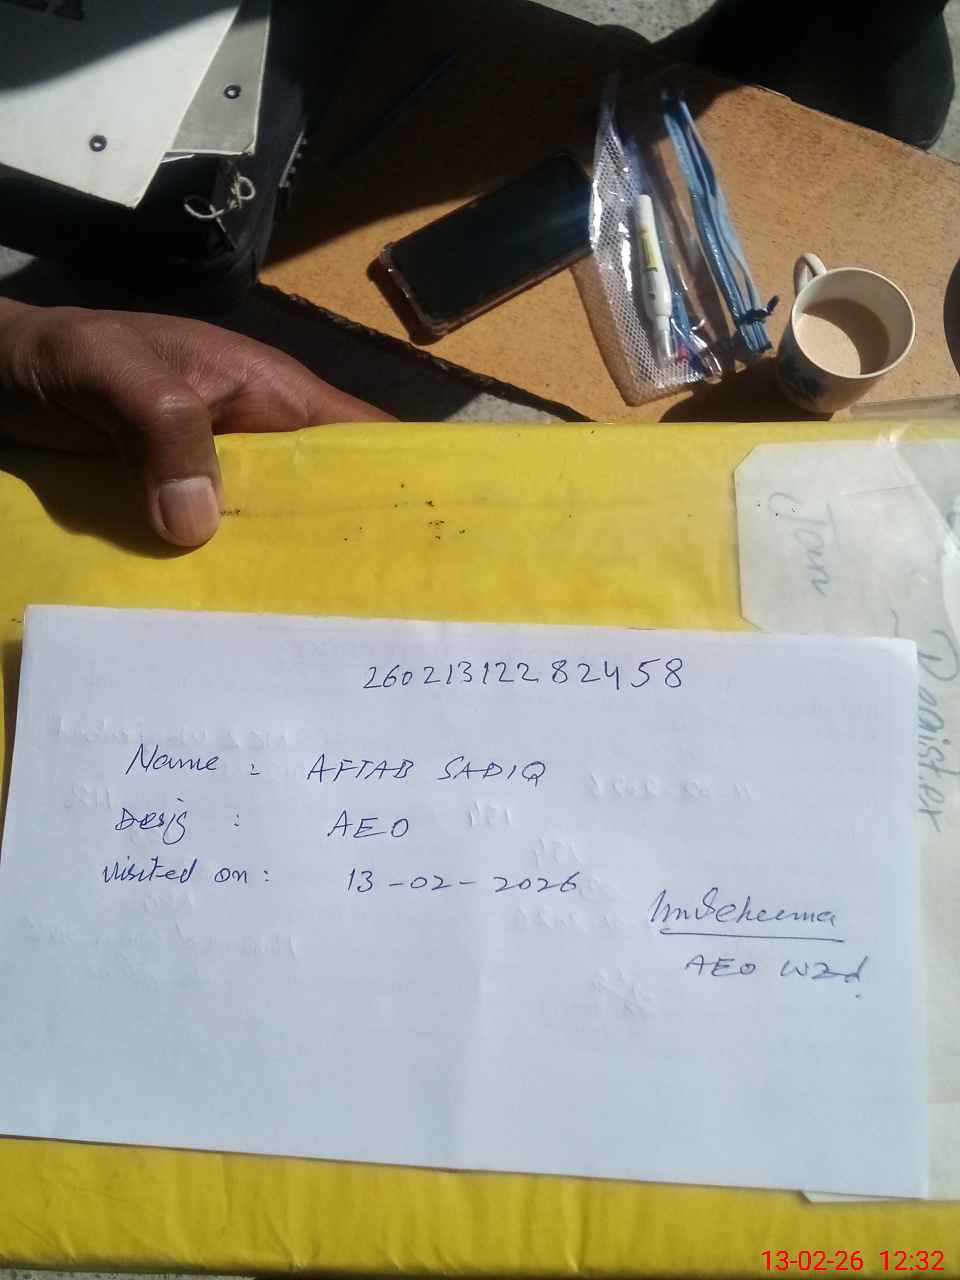 Jan
Register
26021312282458
Name : AFTAB SADIQ
Desig : AEO
Visited on : 13-02-2026
AEO WZd
13-02-26 12:32